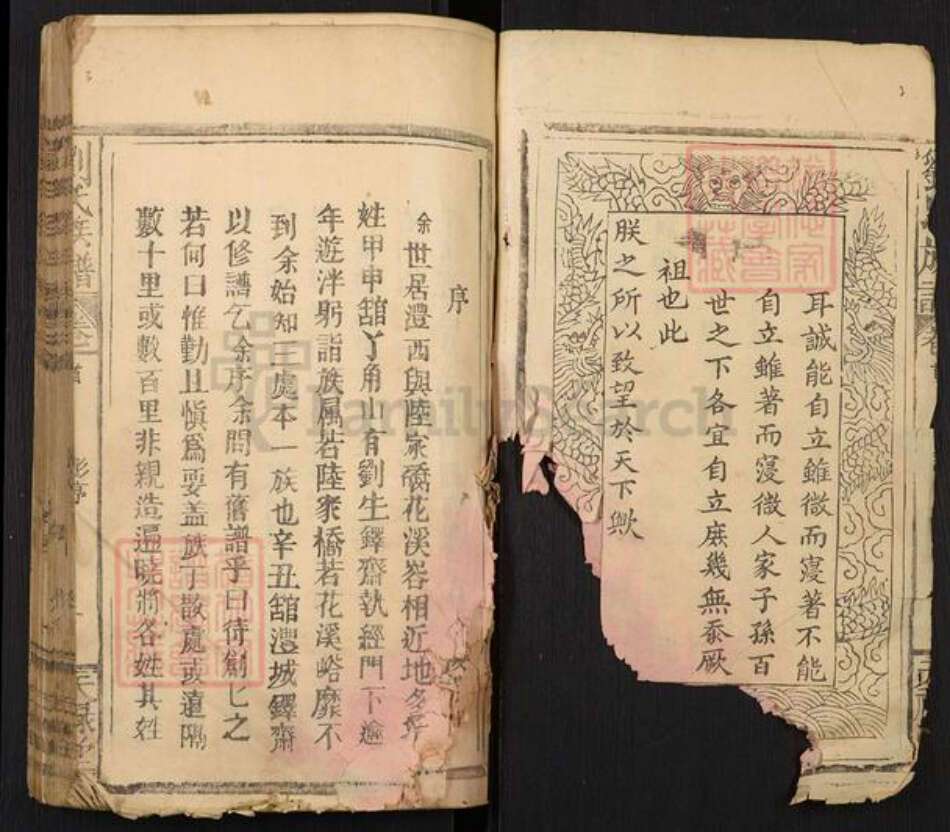 耳誠能自立雖微而寖著不能
自立雖著而寖微人家子孫百
世之下各宜自立庶幾無忝厥
祖也此
朕之所以致望於天下歟
序
余世居澧西與陸家橋花溪峪相近地多劉
姓甲申舘丫角山有劉生鐸齋執經門下逾
年遊泮躬詣族屬若陸家橋若花溪峪靡不
到余始知三處本一族也辛丑舘澧城鐸齋
以修譜乞余序余問有舊譜乎曰待創乜之
若何曰惟勤且慎為要盖族丁散處或遠隔
數十里或數百里非親造遍曉將各姓其姓
劉氏族譜
卷首
彭序
FamilySearch